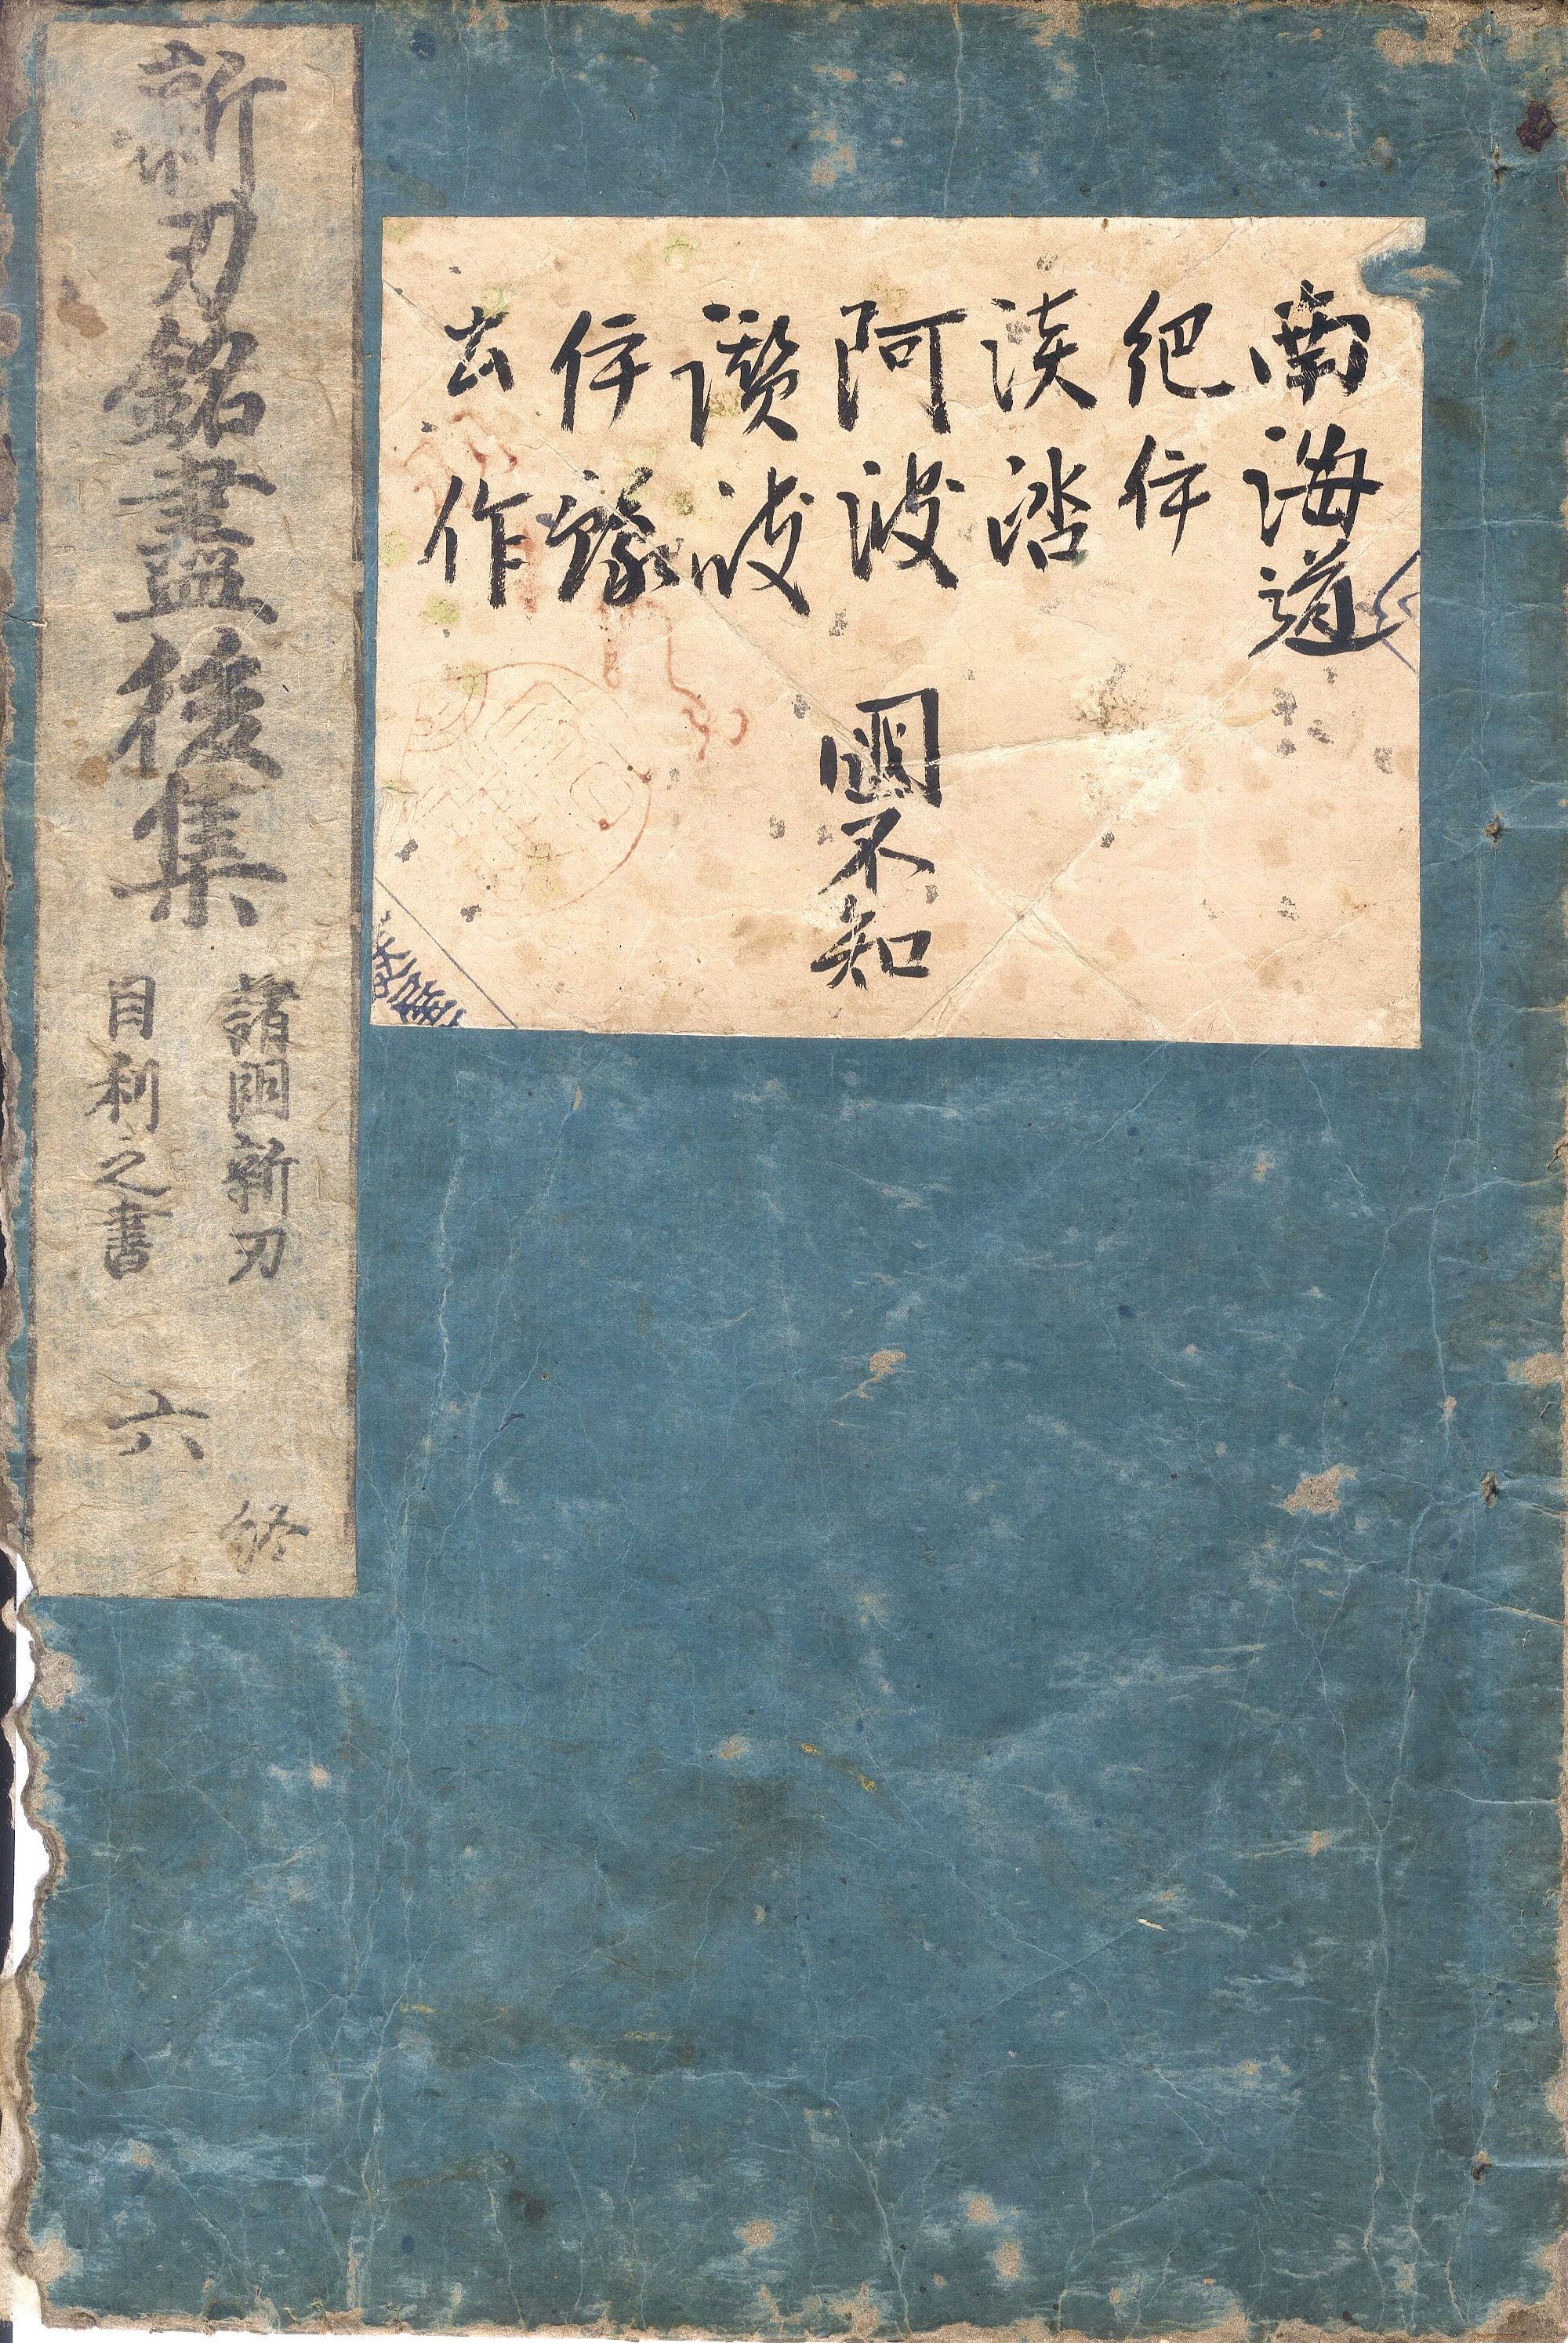 南海道
紀伊
淡路
阿波
讃岐
伊豫
土佐
國不知
新刃銘盡後集
諸國新刃
目利之書
六
終